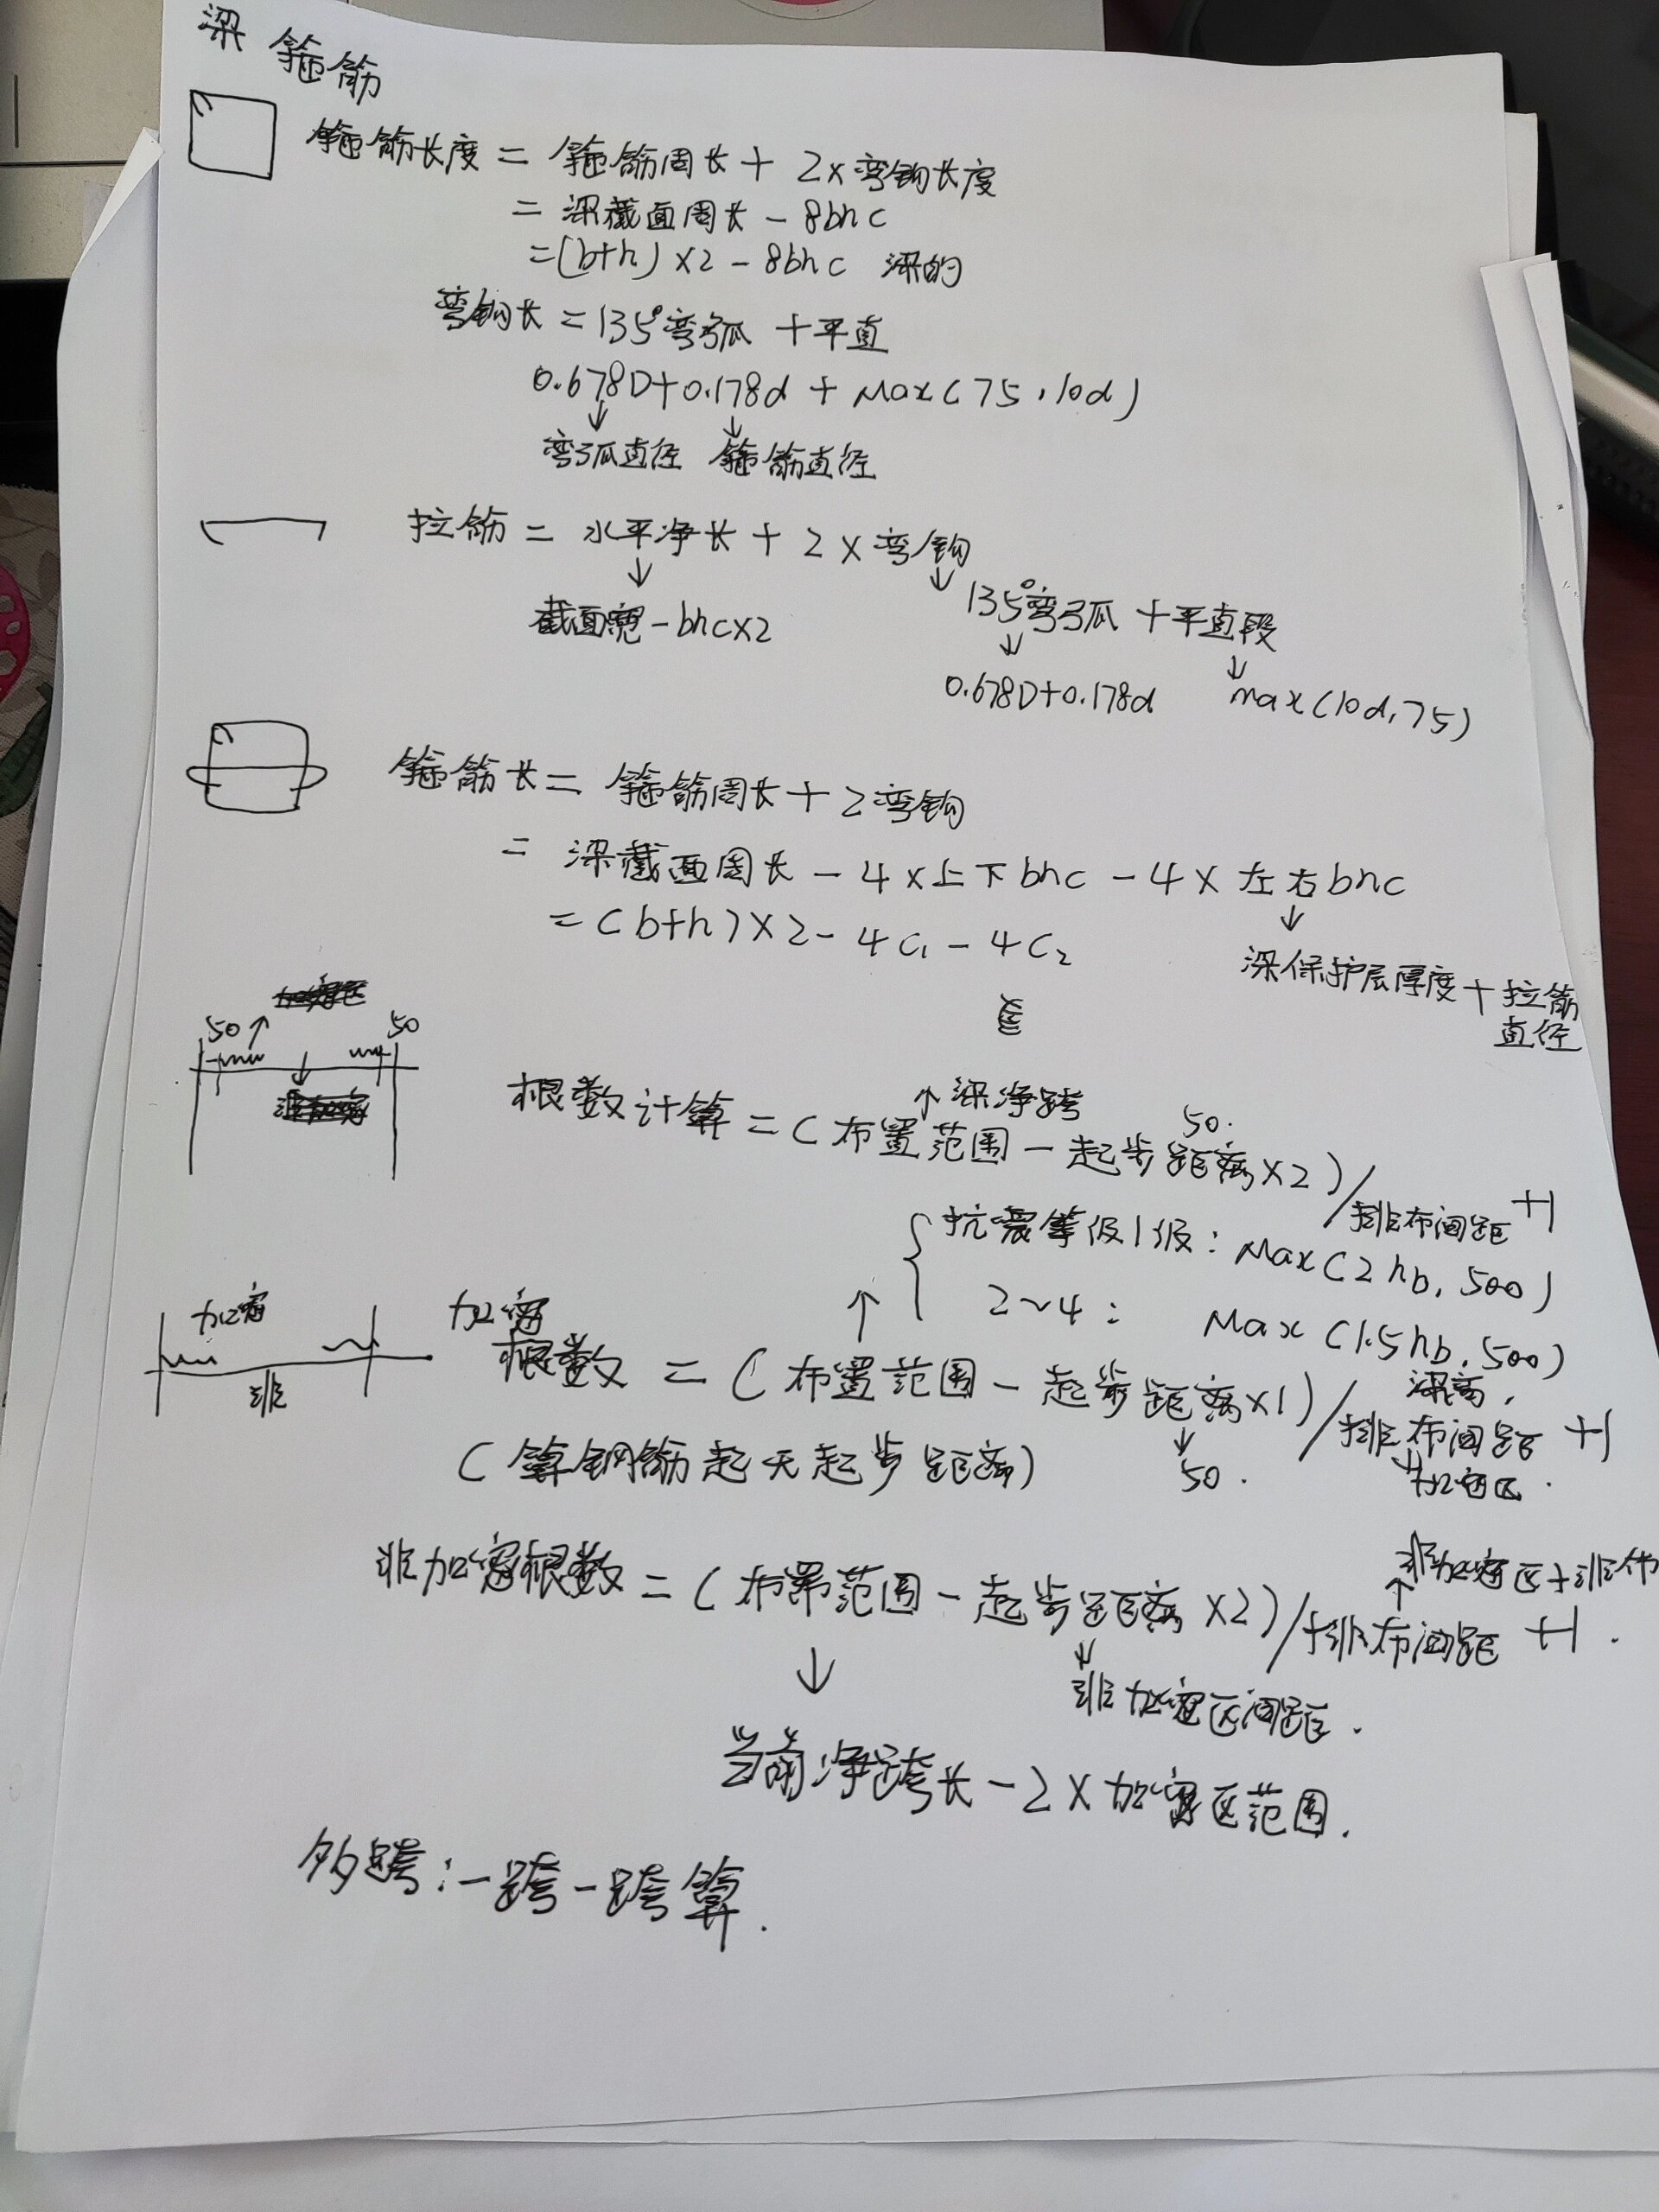 梁 箍筋
箍筋长度 = 箍筋周长 + 2×弯钩长度
= 梁截面周长 - 8bhc
=(b+h)×2-8bhc 梁的
弯钩长 = 135°弯弧 + 平直
0.678D+0.178d + Max(75,10d)
↓ ↓
弯弧直径 箍筋直径
拉筋 = 水平净长 + 2×弯钩
↓ ↓
截面宽-bhc×2
135°弯弧 +平直段
↓ ↓
0.678D+0.178d max(10d,75)
箍筋长= 箍筋周长+2弯钩
= 梁截面周长 - 4×上下bhc - 4×左右bhc
=(b+h)×2-4C₁-4C₂
↓
梁保护层厚度+拉筋
直径
50↑ 50
↓
↑梁净跨
50.
根数计算=(布置范围-起步距离×2)/排布间距+1
抗震等级1级: Max(2hb,500)
2~4: Max(1.5hb,500)
梁高,
加密
非
加密
↑
根数 = (布置范围-起步距离×1)/排布间距+1
↓ ↓
50. 加密区.
(算钢筋起无起步距离)
非加密区
↑
非加密根数=(布置范围-起步距离×2)/排布间距+1.
↓ ↓
非加密区间距.
当前净跨长-2×加密区范围.
多跨:一跨一跨算.